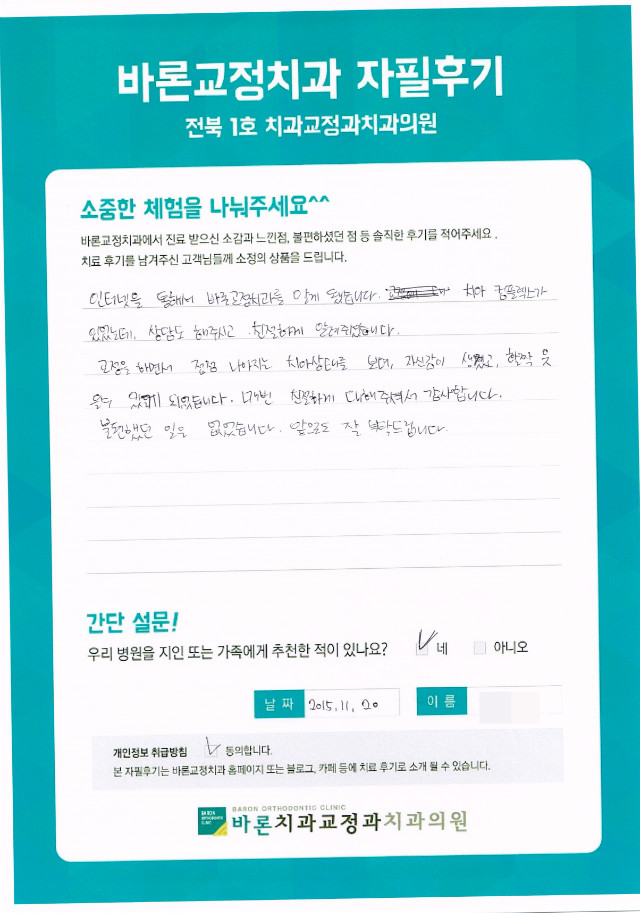 바론교정치과 자필후기
전북 1호 치과교정과치과의원
소중한 체험을 나눠주세요^^
바론교정치과에서 진료 받으신 소감과 느낀점, 불편하셨던 점 등 솔직한 후기를 적어주세요 .
치료 후기를 남겨주신 고객님들께 소정의 상품을 드립니다.
인터넷을 통해서 바론교정치과를 알게 됐습니다. 치아 컴플렉스가
있었는데, 상담도 해주시고 친절하게 알려주셨습니다.
교정을 하면서 점점 나아지는 치아상태를 보며, 자신감이 생겼고, 활짝 웃
을수 있게 되었습니다. 매번 친절하게 대해주셔서 감사합니다.
불편했던 일은 없었습니다. 앞으로도 잘 부탁드립니다.
간단 설문!
우리 병원을 지인 또는 가족에게 추천한 적이 있나요? 네 아니오
날 짜 2015.11.20 이 름
개인정보 취급방침 동의합니다.
본 자필후기는 바론교정치과 홈페이지 또는 블로그, 카페 등에 치료 후기로 소개 될 수 있습니다.
BARON ORTHODONTIC CLINIC
BARON ORTHODONTIC CLINIC
바론치과교정과치과의원